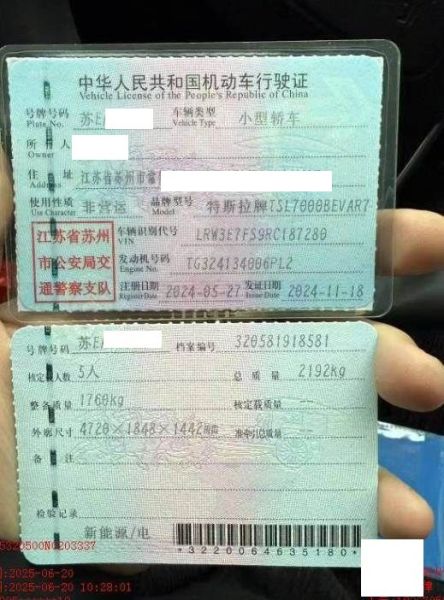 中华人民共和国机动车行驶证
Vehicle License of the People's Republic of China
号牌号码 苏E 车辆类型 小型轿车
Plate No. Vehicle Type
所有人
Owner
住址 江苏省苏州市常
Address
使用性质 非营运 品牌型号 特斯拉牌TSL7000BEVAR7
Use Character Model
江苏省苏州 车辆识别代号 LRW3E7FS9RC187280
VIN
市公安局交 发动机号码 TG324134006PL2
Engine No.
通警察支队 注册日期 2024-05-27 发证日期 2024-11-18
Register Date Issue Date
号牌号码 苏E 档案编号 320581918581
核定载人数 5人 总质量 2192kg
整备质量 1760kg 核定载质量 --
外廓尺寸 4720×1848×1442mm 准牵引总质量 --
备注
检验记录
新能源/电
*3220064635180*
5320500N0203337
:2025-06-20
:2025-06-20 10:28:01